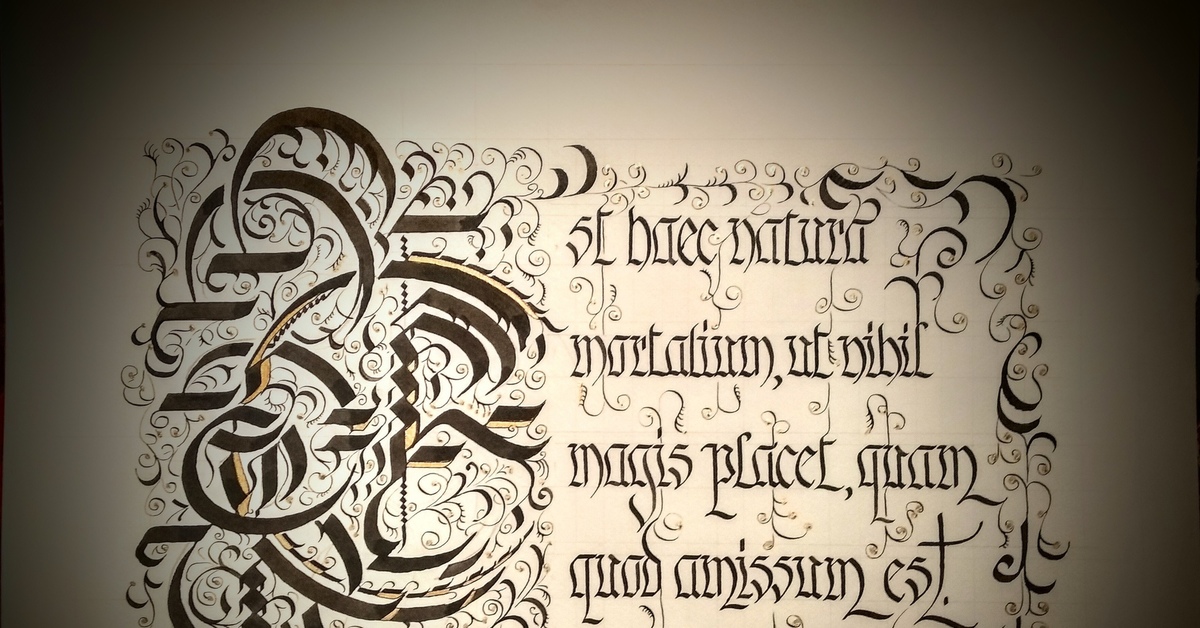 Est haec natura
mortalium, ut nihil
magis placet, quam
quod amissum est.